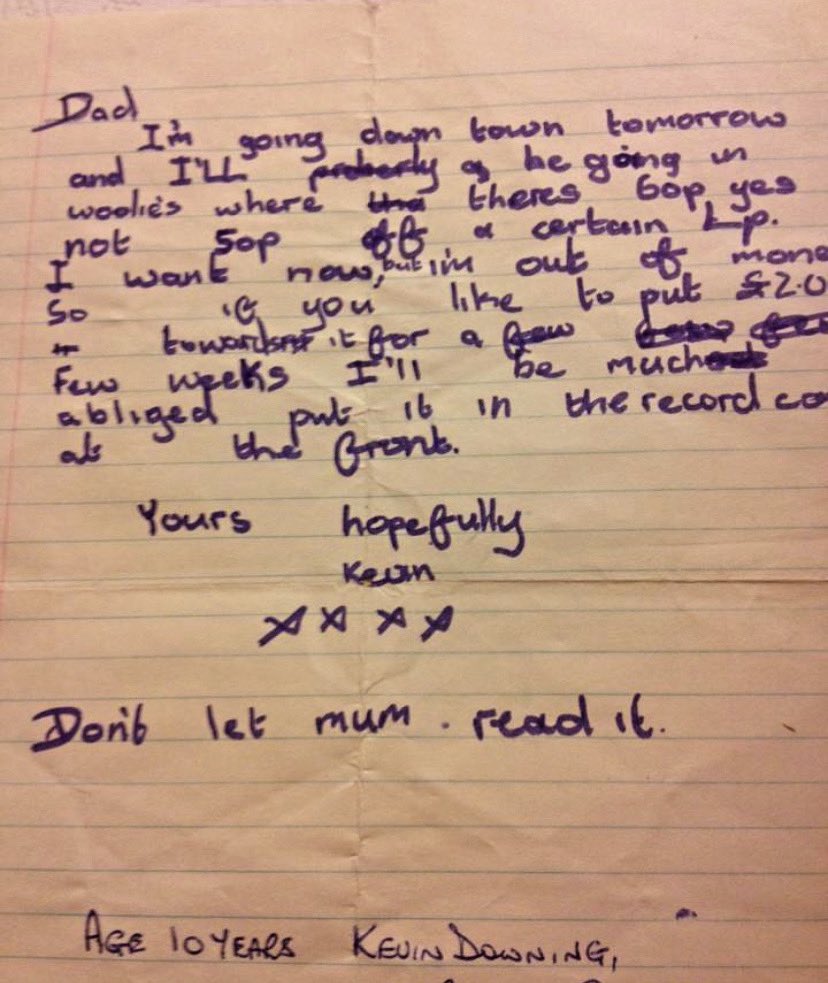 Dad
I'm going down town tomorrow
and I'LL proberly be going in
woolie's where the theres 60p yes
not 50p off a certain Lp.
I want now, but i'm out of mone
So if you like to put £2.0
towards it for a few
Few weeks I'll be much
abliged put it in the record ca
at the front.
Yours hopefully
Kevin
x x x x
Don't let mum. read it.
AGE 10 YEARS KEVIN DOWNING,